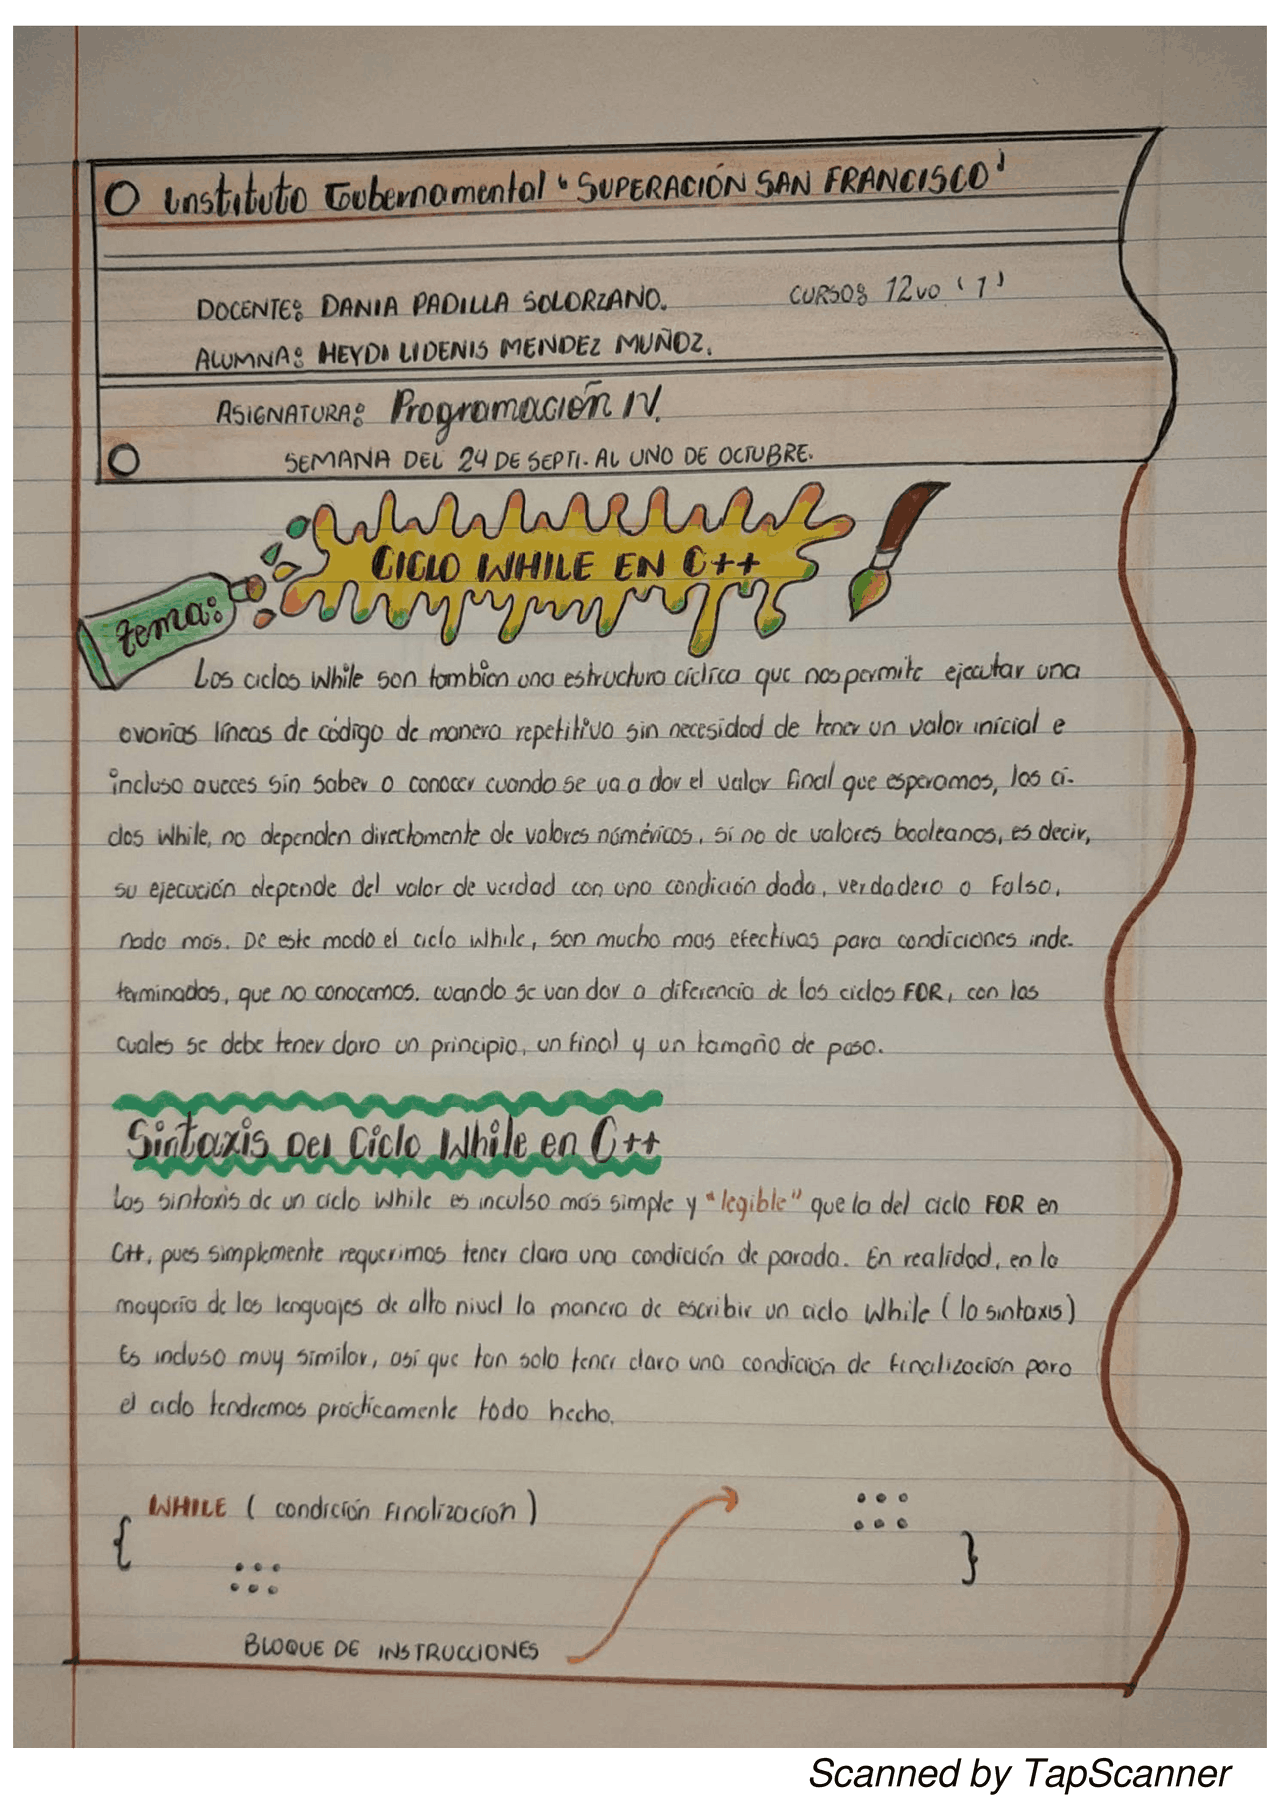 Instituto Gubernamental "SUPERACIÓN SAN FRANCISCO"
DOCENTE: DANIA PADILLA SOLORZANO. CURSO: 12vo "1"
ALUMNA: HEYDI LIDENIS MENDEZ MUÑOZ.
ASIGNATURA: Programación IV.
SEMANA DEL 24 DE SEPTI. AL UNO DE OCTUBRE.
CICLO WHILE EN C++
tema:
Los ciclos While son tambien una estructura cíclica que nos permite ejecutar una
ovarias líneas de código de manera repetitiva sin necesidad de tener un valor inicial e
incluso aveces sin saber o conocer cuando se va a dar el valor final que esperamos, los ci-
clos While, no dependen directamente de valores númericos, si no de valores booleanos, es decir,
su ejecución depende del valor de verdad con una condición dada, verdadero o Falso,
nada mas. De este modo el ciclo While, son mucho mas efectivas para condiciones inde-
terminadas, que no conocemos. cuando se van dar a diferencia de los ciclos FOR, con los
cuales se debe tener claro un principio, un final y un tamaño de paso.
Sintaxis Del Ciclo While en C++
Las sintaxis de un ciclo While es inculso mas simple y "legible" que la del ciclo FOR en
C++, pues simplemente requerimos tener clara una condición de parada. En realidad, en la
mayoría de los lenguajes de alto nivel la manera de escribir un ciclo While (la sintaxis)
Es incluso muy similar, así que tan solo tener clara una condición de finalización para
el ciclo tendremos prácticamente todo hecho.
WHILE ( condición Finalización )
{
...
...
BLOQUE DE INSTRUCCIONES
...
...
}
Scanned by TapScanner